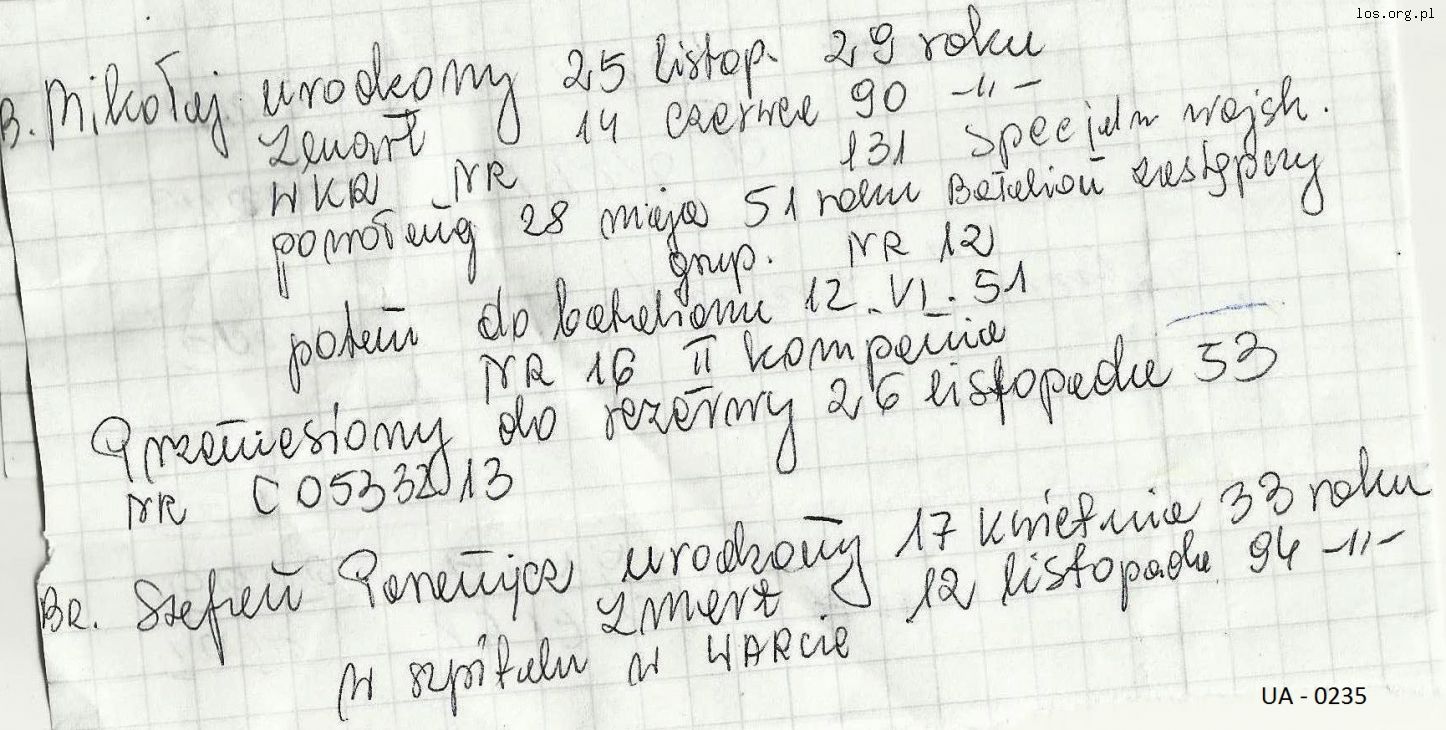 los.org.pl
B. Mikołaj urodzony 25 listop. 29 roku
zmarł 14 czerwca 90 -"-
WKR NR 131 Specjaln wojsk.
powołany 28 maja 51 roku Batalion zastępczy
grup. NR 12
potem do batalionu 12.VI.51
NR 16 II kompania
Przeniesiony do rezerwy 26 listopada 53
NR C 0533213
BR. Stefan urodzony 17 kwietnia 33 roku
zmarł 12 listopada 94 -"-
w szpitalu w WARcie
UA - 0235